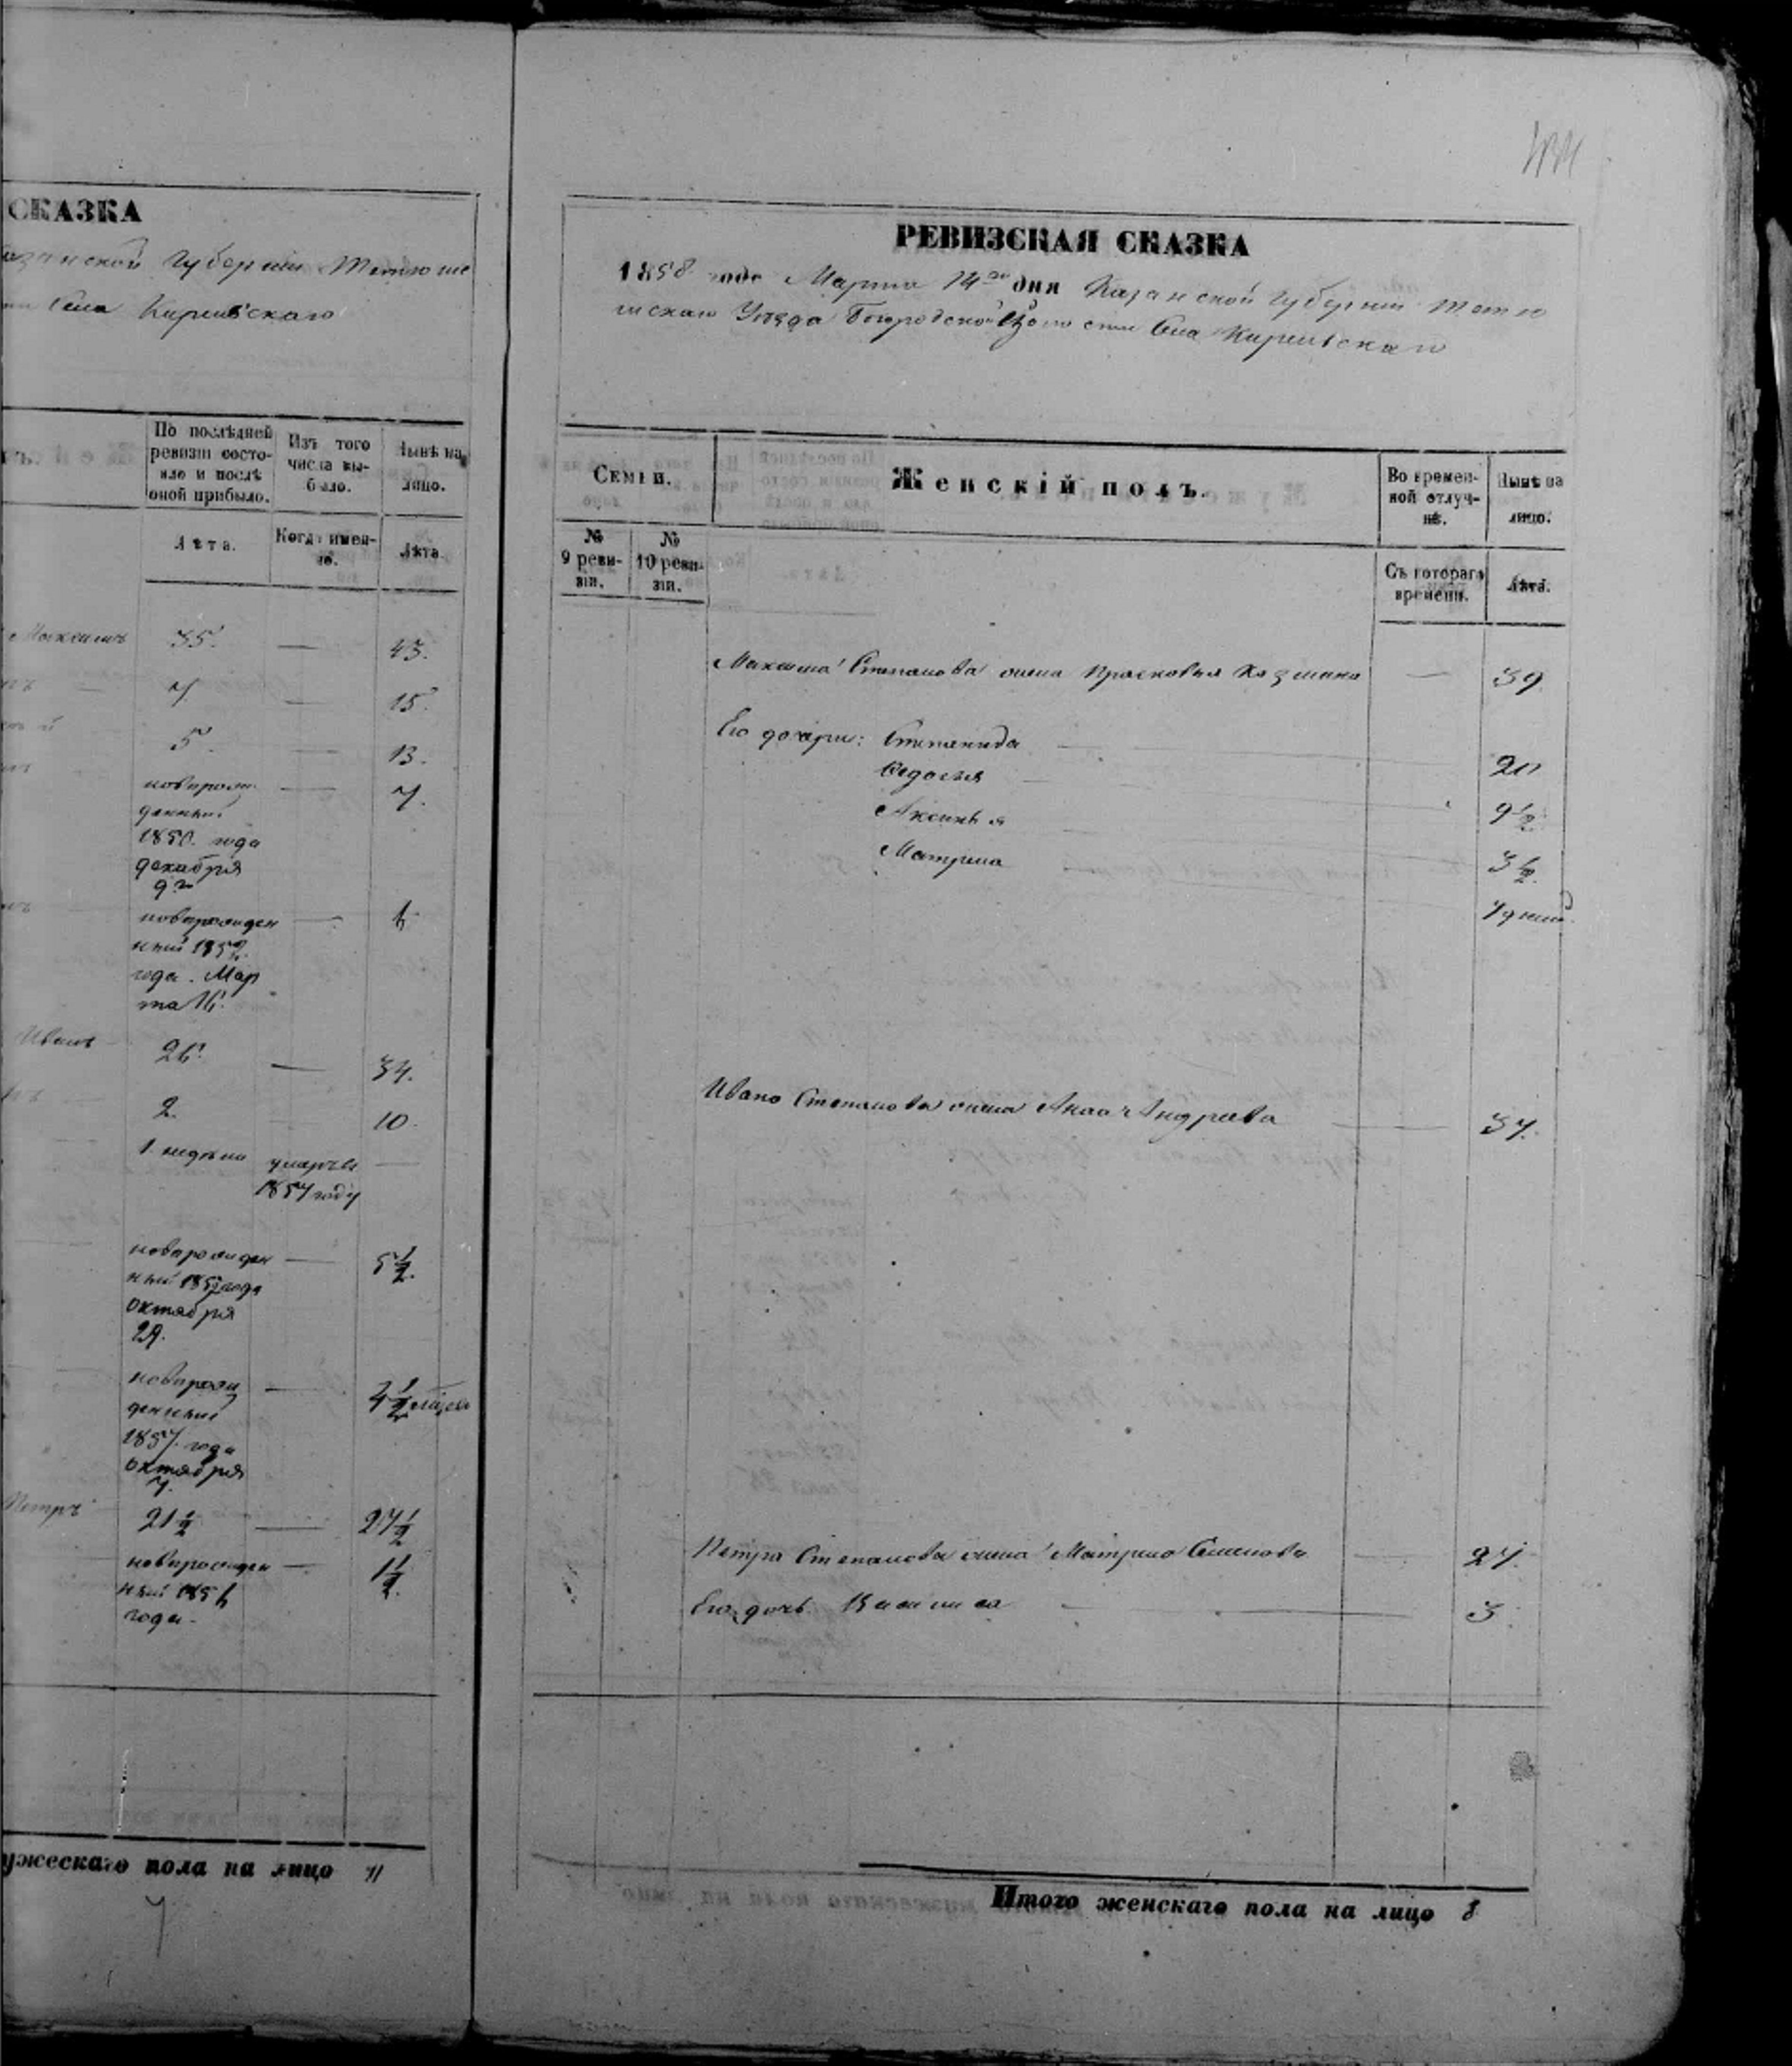 СКАЗКА
Губернiи Тетюше
Села Кирельскаго
По послѣдней
ревизiи состо-
яло и послѣ
оной прибыло.
Изъ того
числа вы-
было.
Нынѣ на
лицо.
Лѣта.
Когда имен-
но.
Лѣта.
Максимъ 35. — 43.
7. — 15.
5. — 13.
новорож — 7.
денный
1850. года
декабря
9го
новорожден — 6
ный 1852
года. Мар
та 16.
Иванъ 26. — 34.
2. 10.
1 недѣли умерѣ —
1857 году
новорожден — 5 1/2.
ный 1852 года
октября
29.
новорож — 4 1/2 месяца
денный
1857. года
октября
7.
Петръ 21 1/2 — 27 1/2
новорожден — 1 1/2.
ный 1856
года.
ужескаго пола на лицо 11
7
434
РЕВИЗСКАЯ СКАЗКА
1858 года Марта 14го дня Казанской Губернiи Тетю
шскаго Уѣзда Богородской Волости Села Кирельскаго
Семьи.
Женскiй полъ.
Во времен-
ной отлуч-
кѣ.
Нынѣ на
лицо.
№
9 реви-
зiи.
№
10 реви-
зiи.
Съ котораго
времени.
Лѣта.
Максима Степанова жена Прасковья Козмина — 39
Его дочери: Степанида — 20
Федосья — 9 1/2
Аксинья 3 1/2.
Матрина
7 дней
Ивана Степанова жена Анна Андреева — 37.
Петра Степанова жена Матрина Семенова — 27.
Его дочь — 3
Итого женскаго пола на лицо 8